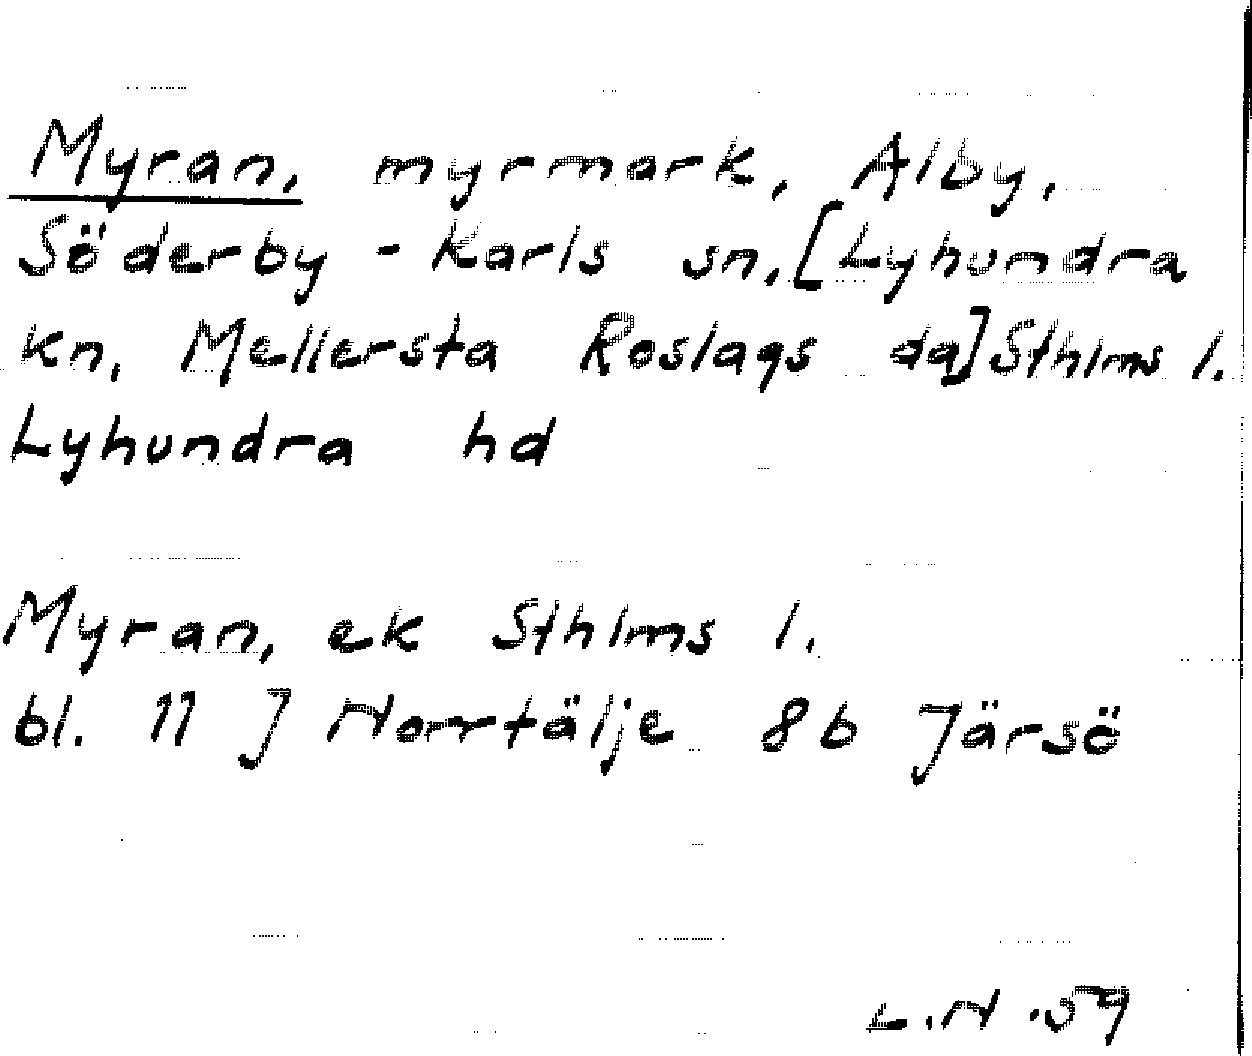 Myran, myrmark, Alby,
Söderby - Karls sn, [Lyhundra
kn, Mellersta Roslags da] Sthlms l.
Lyhundra hd
Myran, ek Sthlms l.
bl. 11 J Norrtälje 8b Järsö
L.N. 59